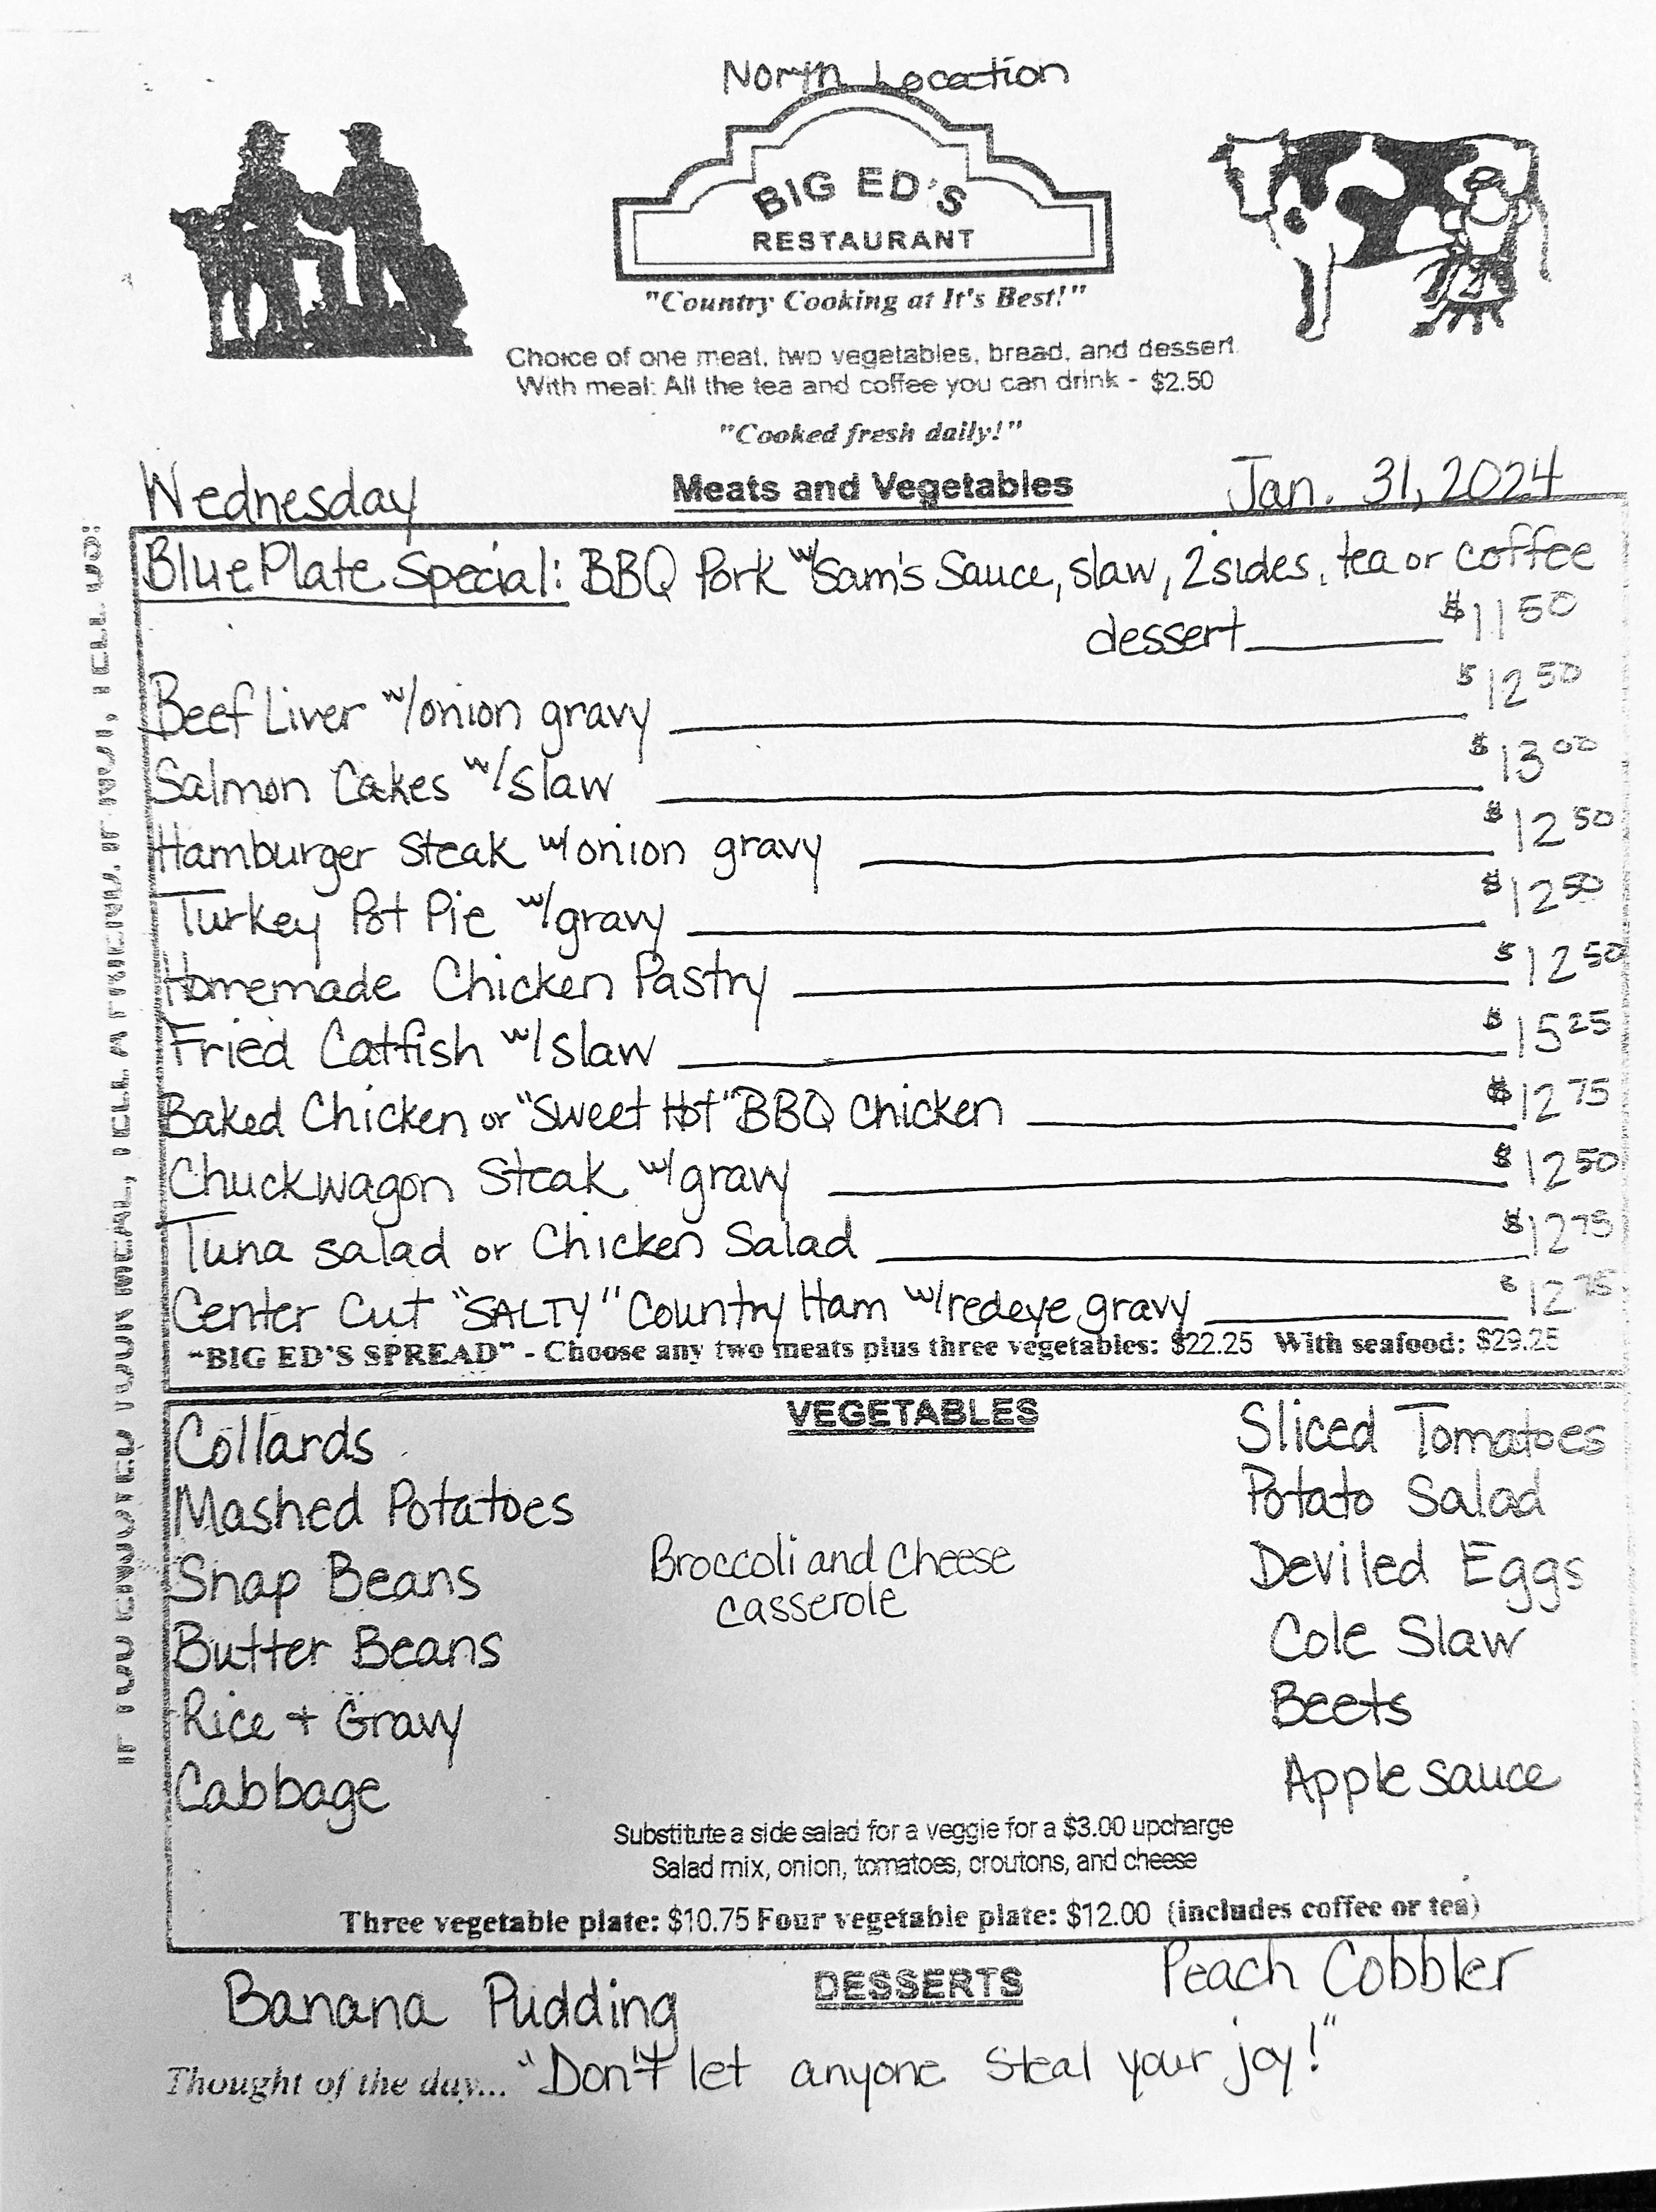 North Location
BIG ED'S
RESTAURANT
"Country Cooking at It's Best!"
Choice of one meat, two vegetables, bread, and dessert.
With meal: All the tea and coffee you can drink - $2.50
"Cooked fresh daily!"
Wednesday Meats and Vegetables Jan. 31, 2024
Blue Plate Special: BBQ Pork w/Sam's Sauce, slaw, 2 sides, tea or coffee
dessert $11.50
Beef Liver w/onion gravy $12.50
Salmon Cakes w/slaw $13.00
Hamburger Steak w/onion gravy $12.50
Turkey Pot Pie w/gravy $12.50
Homemade Chicken Pastry $12.50
Fried Catfish w/slaw $15.25
Baked Chicken or "Sweet Hot" BBQ Chicken $12.75
Chuckwagon Steak w/gravy $12.50
Tuna salad or Chicken Salad $12.75
Center Cut "SALTY" Country Ham w/redeye gravy $12.75
"BIG ED'S SPREAD" - Choose any two meats plus three vegetables: $22.25 With seafood: $29.25
VEGETABLES
Collards
Mashed Potatoes
Snap Beans
Butter Beans
Rice + Gravy
Cabbage
Broccoli and Cheese
casserole
Sliced Tomatoes
Potato Salad
Deviled Eggs
Cole Slaw
Beets
Apple sauce
Substitute a side salad for a veggie for a $3.00 upcharge
Salad mix, onion, tomatoes, croutons, and cheese
Three vegetable plate: $10.75 Four vegetable plate: $12.00 (includes coffee or tea)
Banana Pudding DESSERTS Peach Cobbler
Thought of the day... "Don't let anyone steal your joy!"
IF YOU ENJOYED YOUR MEAL, TELL A FRIEND. IF NOT, TELL US!